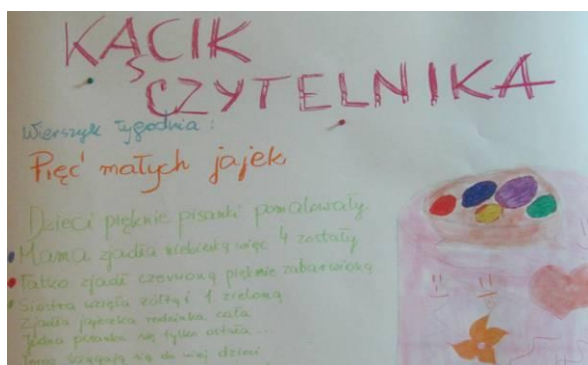 KĄCIK
CZYTELNIKA
Wierszyk tygodnia:
Pięć małych jajek
Dzieci pięknie pisanki pomalowały
Mama zjadła niebieską więc 4 zostały
Tatko zjadł czerwoną pięknie zabarwioną
Siostra wzięła żółtą i 1 zieloną
Zjadła jajeczka rodzinka cała
Jedna pisanka się tylko ostała...
się do niej dzieci